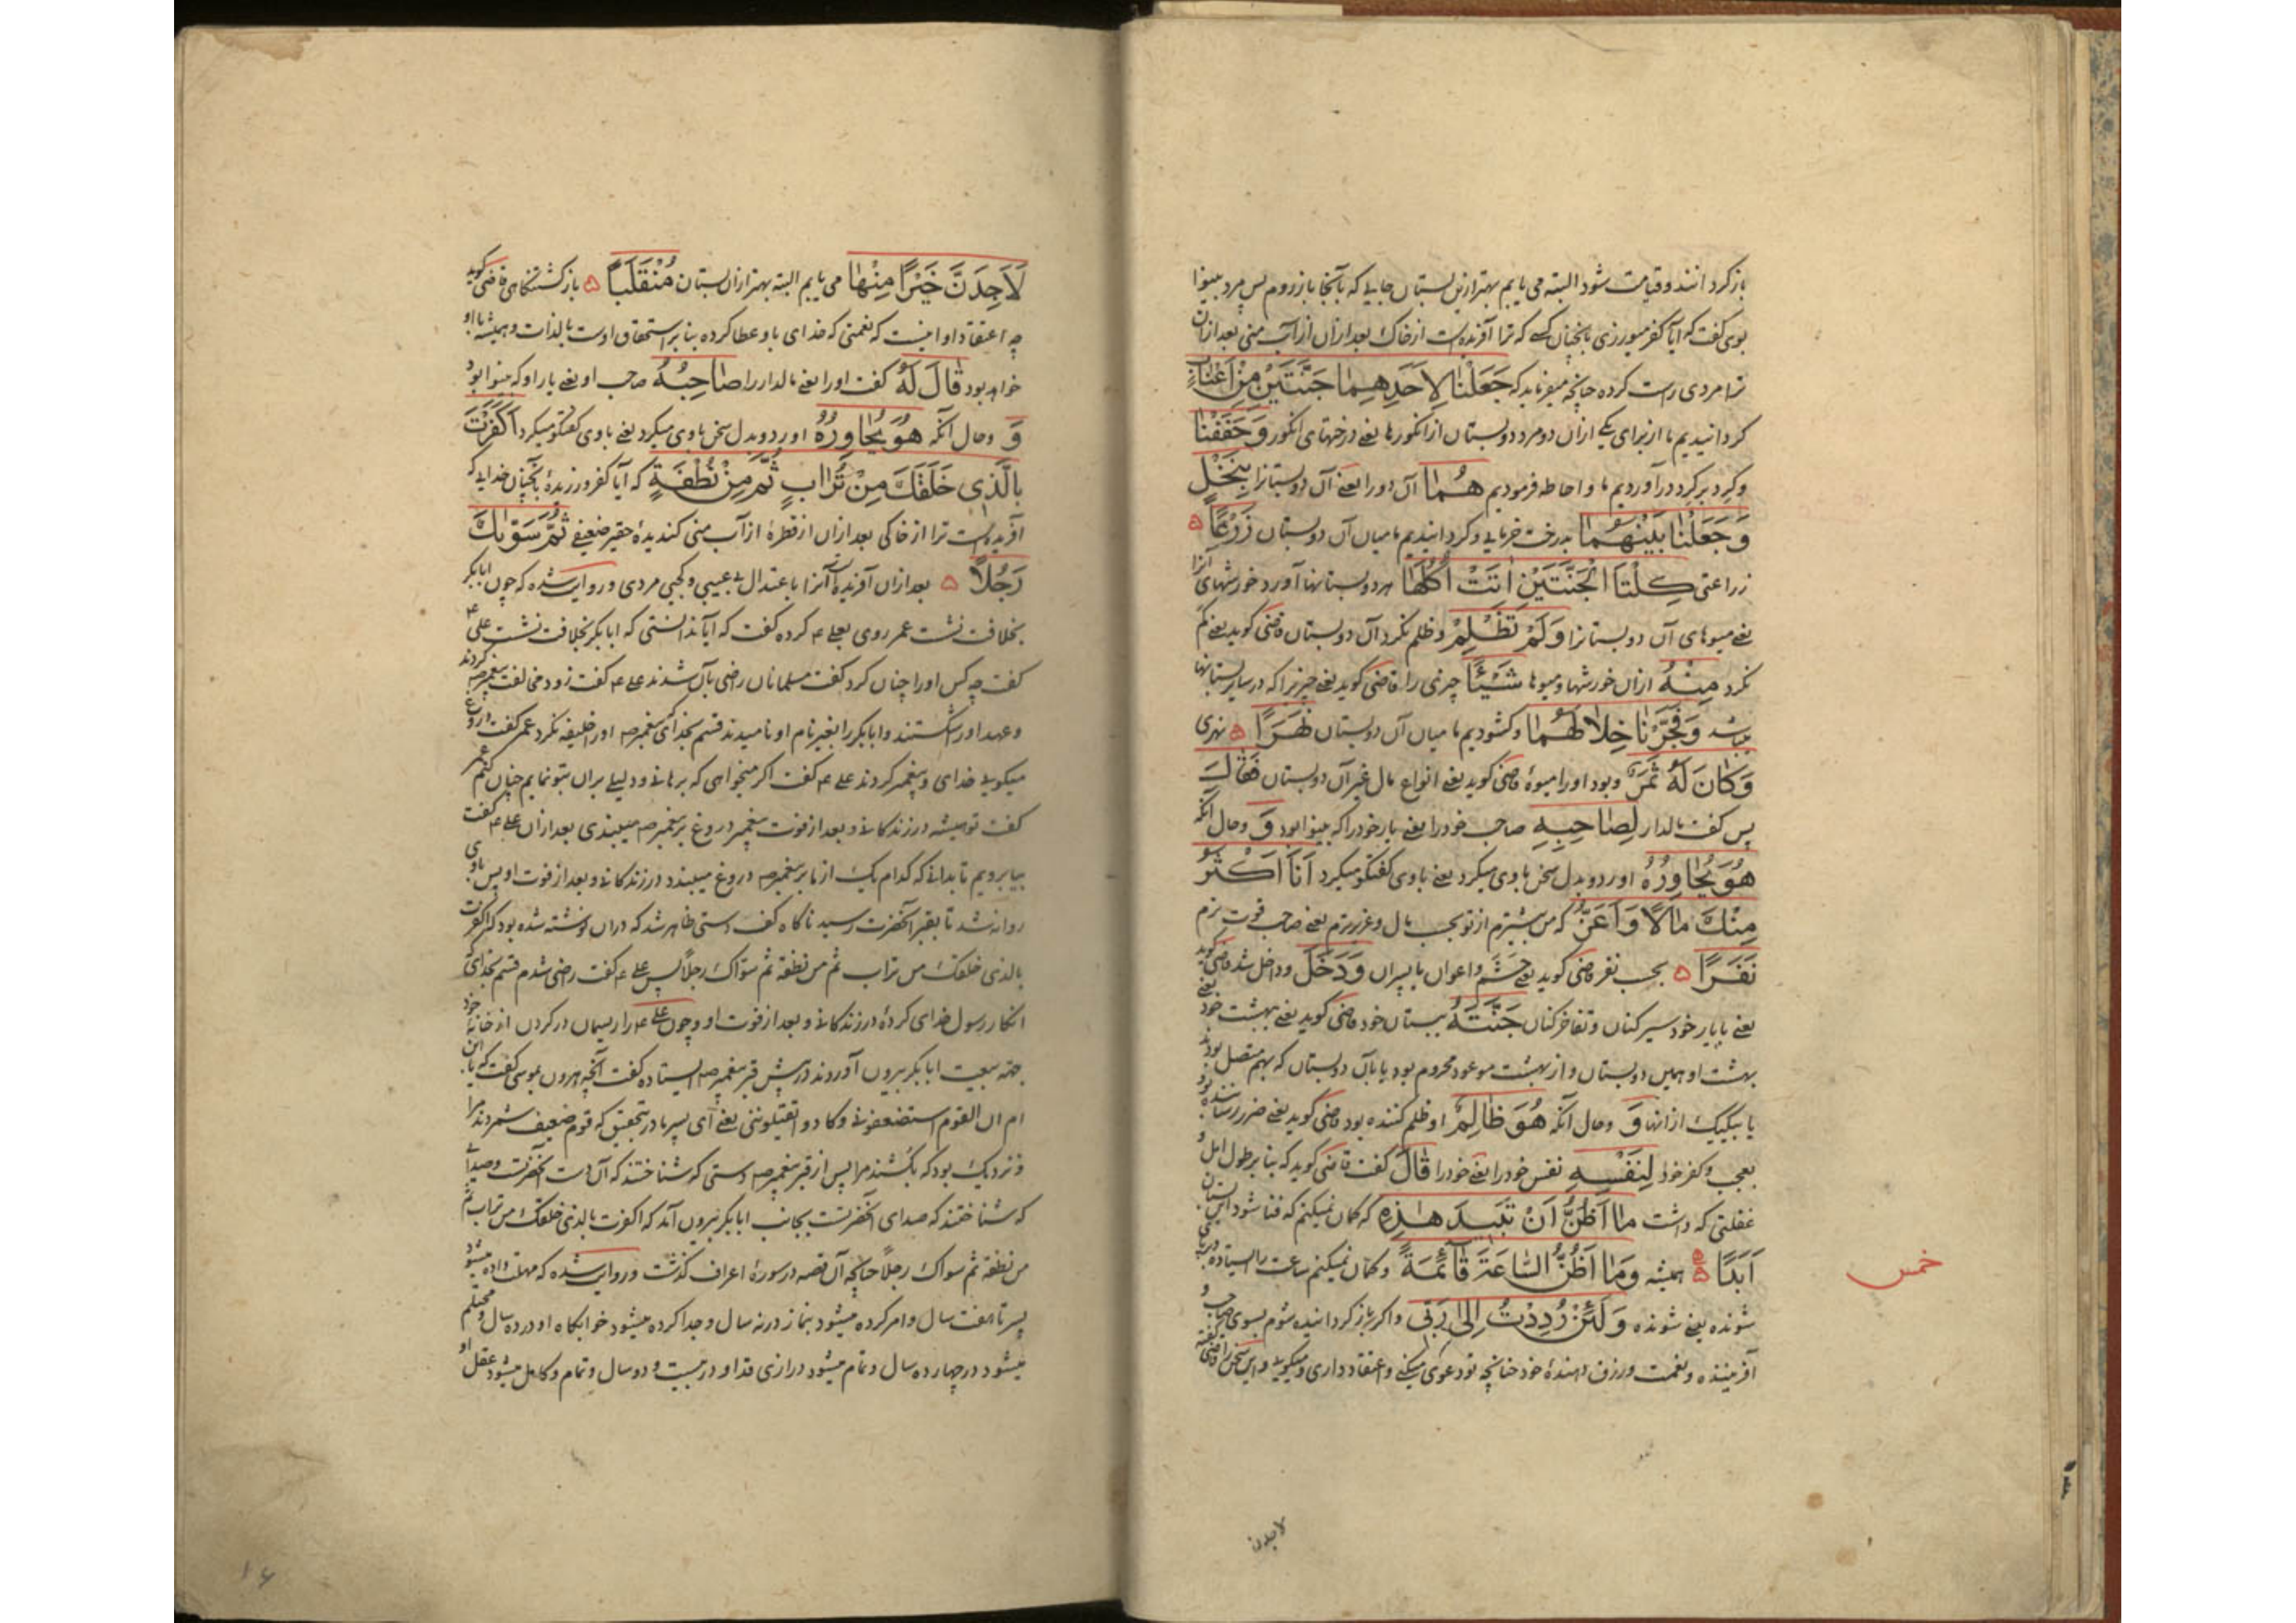 باز گردانند و قیامت شود البته می یابم بهتر ازین بستان جایی که بآنجا باز روم پس مرد بینوا
بوی گفت که ایا کفر میورزی بانچنان کسی که ترا آفریده است از خاک بعد ازان از آب منی بعد ازان
ترا مردی راست کرده چنانچه میفرماید که جَعَلْنَا لِاَحَدِهِمَا جَنَّتَيْنِ مِنْ اَعْنَابٍ
گردانیدیم ما از برای یکی ازان دو مرد دو بستان از انگورها یعنی درختهای انگور وَحَفَفْنَا
و گرد برگرد در آوردیم ما و احاطه فرمودیم هُمَا آن دو را یعنی آن دو بستانرا بِنَخْلٍ
وَجَعَلْنَا بَيْنَهُمَا بدرخت خرمایی و گردانیدیم ما میان آن دو بستان زَرْعًا
زراعتی كِلْتَا الْجَنَّتَيْنِ اٰتَتْ اُكُلَهَا هر دو بستانها آورد خورشهای آنرا
یعنی میوهای آن دو بستانرا وَلَمْ تَظْلِمْ و ظلم نکرد آن دو بستان قاضی گوید یعنی کم
نکرد مِنْهُ ازان خورشها و میوها شَيْئًا چیزی را قاضی گوید یعنی چیزیرا که در سایر بستانها
میباشد وَفَجَّرْنَا خِلَالَهُمَا و گشودیم ما میان آن دو بستان نَهَرًا نهری
وَكَانَ لَهُ ثَمَرٌ و بود او را میوهٔ قاضی گوید یعنی انواع مال غیر آن دو بستان فَقَالَ
پس گفت مالدار لِصَاحِبِهِ صاحب خود را یعنی یار خود را که بینوا بود وَ و حال آنکه
هُوَ يُحَاوِرُهُ او رد و بدل سخن باوی میکرد یعنی باوی گفتگو میکرد اَنَا اَكْثَرُ
مِنْكَ مَالًا وَاَعَزُّ که من بیشترم از تو بحسب مال و عزیزترم یعنی صاحب قوت ترم
نَفَرًا بحسب نفر قاضی گوید یعنی حشم و اعوان یا پسران وَدَخَلَ و داخل شد قاضی گوید
یعنی با یار خود سیر کنان و تفاخر کنان جَنَّتَهُ ببستان خود قاضی گوید یعنی بهشت خود یعنی
بهشت او همین دو بستان و از بهشت موعود محروم بود یا بآن دو بستان که بهم متصل بودند
یا بیکیک از انها وَ و حال آنکه هُوَ ظَالِمٌ او ظلم کننده بود قاضی گوید یعنی ضرر رساننده بود
بعجب و کفر خود لِنَفْسِهِ نفس خود را یعنی خود را قَالَ گفت قاضی گوید که بنا بر طول امل و
غفلتی که داشت مَا اَظُنُّ اَنْ تَبِيدَ هٰذِهِ که گمان نمیکنم که فنا شود این بستان
اَبَدًا همیشه وَمَا اَظُنُّ السَّاعَةَ قَائِمَةً و گمان نمیکنم ساعت را ایستاده
شونده یعنی شونده وَلَئِنْ رُدِدْتُ اِلٰى رَبِّى و اگر باز گردانیده شوم بسوی صاحب و
آفریننده و نعمت و رزق دهندهٔ خود چنانچه تو دعوی میکنی و اعتقاد داری و میگویی
خمس
لاجدن
لَاَجِدَنَّ خَيْرًا مِنْهَا می یابم البته بهتر ازان بستان مُنْقَلَبًا بازگشتنگاهی قاضی گوید
چه اعتقاد او اینست که نعمتی که خدای باو عطا کرده بنا بر استحقاق اوست بالذات و همیشه با او
خواهد بود قَالَ لَهُ گفت او را یعنی مالدار را صَاحِبُهُ صاحب او یعنی یار او که بینوا بود
وَ و حال آنکه هُوَ يُحَاوِرُهُ او رد و بدل سخن باوی میکرد یعنی باوی گفتگو میکرد اَكَفَرْتَ
بِالَّذِى خَلَقَكَ مِنْ تُرَابٍ ثُمَّ مِنْ نُطْفَةٍ که آیا کفر ورزندهٔ بآنچنان خدایی که
آفریده است ترا از خاکی بعد ازان از قطرهٔ از آب منی گندیدهٔ حقیر ضعیفی ثُمَّ سَوّٰيكَ
رَجُلًا بعد ازان آفریده آنرا باعتدال بی عیبی و کجی مردی و روایت شده که چون ابابکر
بخلافت نشست عمر روی بعلی ع کرده گفت که آیا ندانستی که ابابکر بخلافت نشست علی ع
گفت چه کس او را چنان کرد گفت مسلمانان راضی بآن شدند علی ع گفت زود مخالفت پیغمبر ص کردند
و عهد او را شکستند و ابابکر را بغیر نام او نامیدند قسم بخدا که پیغمبر ص او را خلیفه نکرد عمر گفت دروغ
میگویی خدای و پیغمبر کردند علی ع گفت اگر میخواهی که برهانی و دلیلی بران بتو نمایم چنان کنم عمر
گفت تو همیشه در زندگانی و بعد از فوت پیغمبر دروغ بر پیغمبر ص میبندی بعد ازان علی ع گفت
بیا برویم تا بدانی که کدام یک از ما بر پیغمبر ص دروغ میبندد در زندگانی و بعد از فوت او پس باوی
روانه شد تا بقبر آنحضرت رسید ناگاه کف دستی ظاهر شد که دران نوشته شده بود که اکفرت
بالذی خلقک من تراب ثم من نطفة ثم سواک رجلا پس علی ع گفت راضی شدم قسم بخدای
انکار رسول خدای کردهٔ در زندگانی و بعد از فوت او و چون علی ع را ریسمان در گردن از خانهٔ خود
بجهة بیعت ابابکر بیرون آوردند در پیش قبر پیغمبر ص ایستاده گفت آنچه هرون بموسی گفت که یا بن
ام ان القوم استضعفونی و کادوا یقتلوننی یعنی ای پسر مادر بتحقیق که قوم ضعیف شمردند مرا
و نزدیک بود که بکشند مرا پس از قبر پیغمبر ص دستی که شناختند که آن دست آنحضرتست و صدایی
که شناختند که صدای آنحضرتست بجانب ابابکر بیرون آمد که اکفرت بالذی خلقک من تراب ثم
من نطفة ثم سواک رجلا چنانچه آن قصه در سورهٔ اعراف گذشت و روایت شده که مهلت داده میشود
پسر تا هفت سال و امر کرده میشود بنماز در نه سال و جدا کرده میشود خوابگاه او در ده سال و محتلم
میشود در چهارده سال و تمام میشود درازی قد او در بیست و دو سال و تمام و کامل میشود عقل او
۱۶